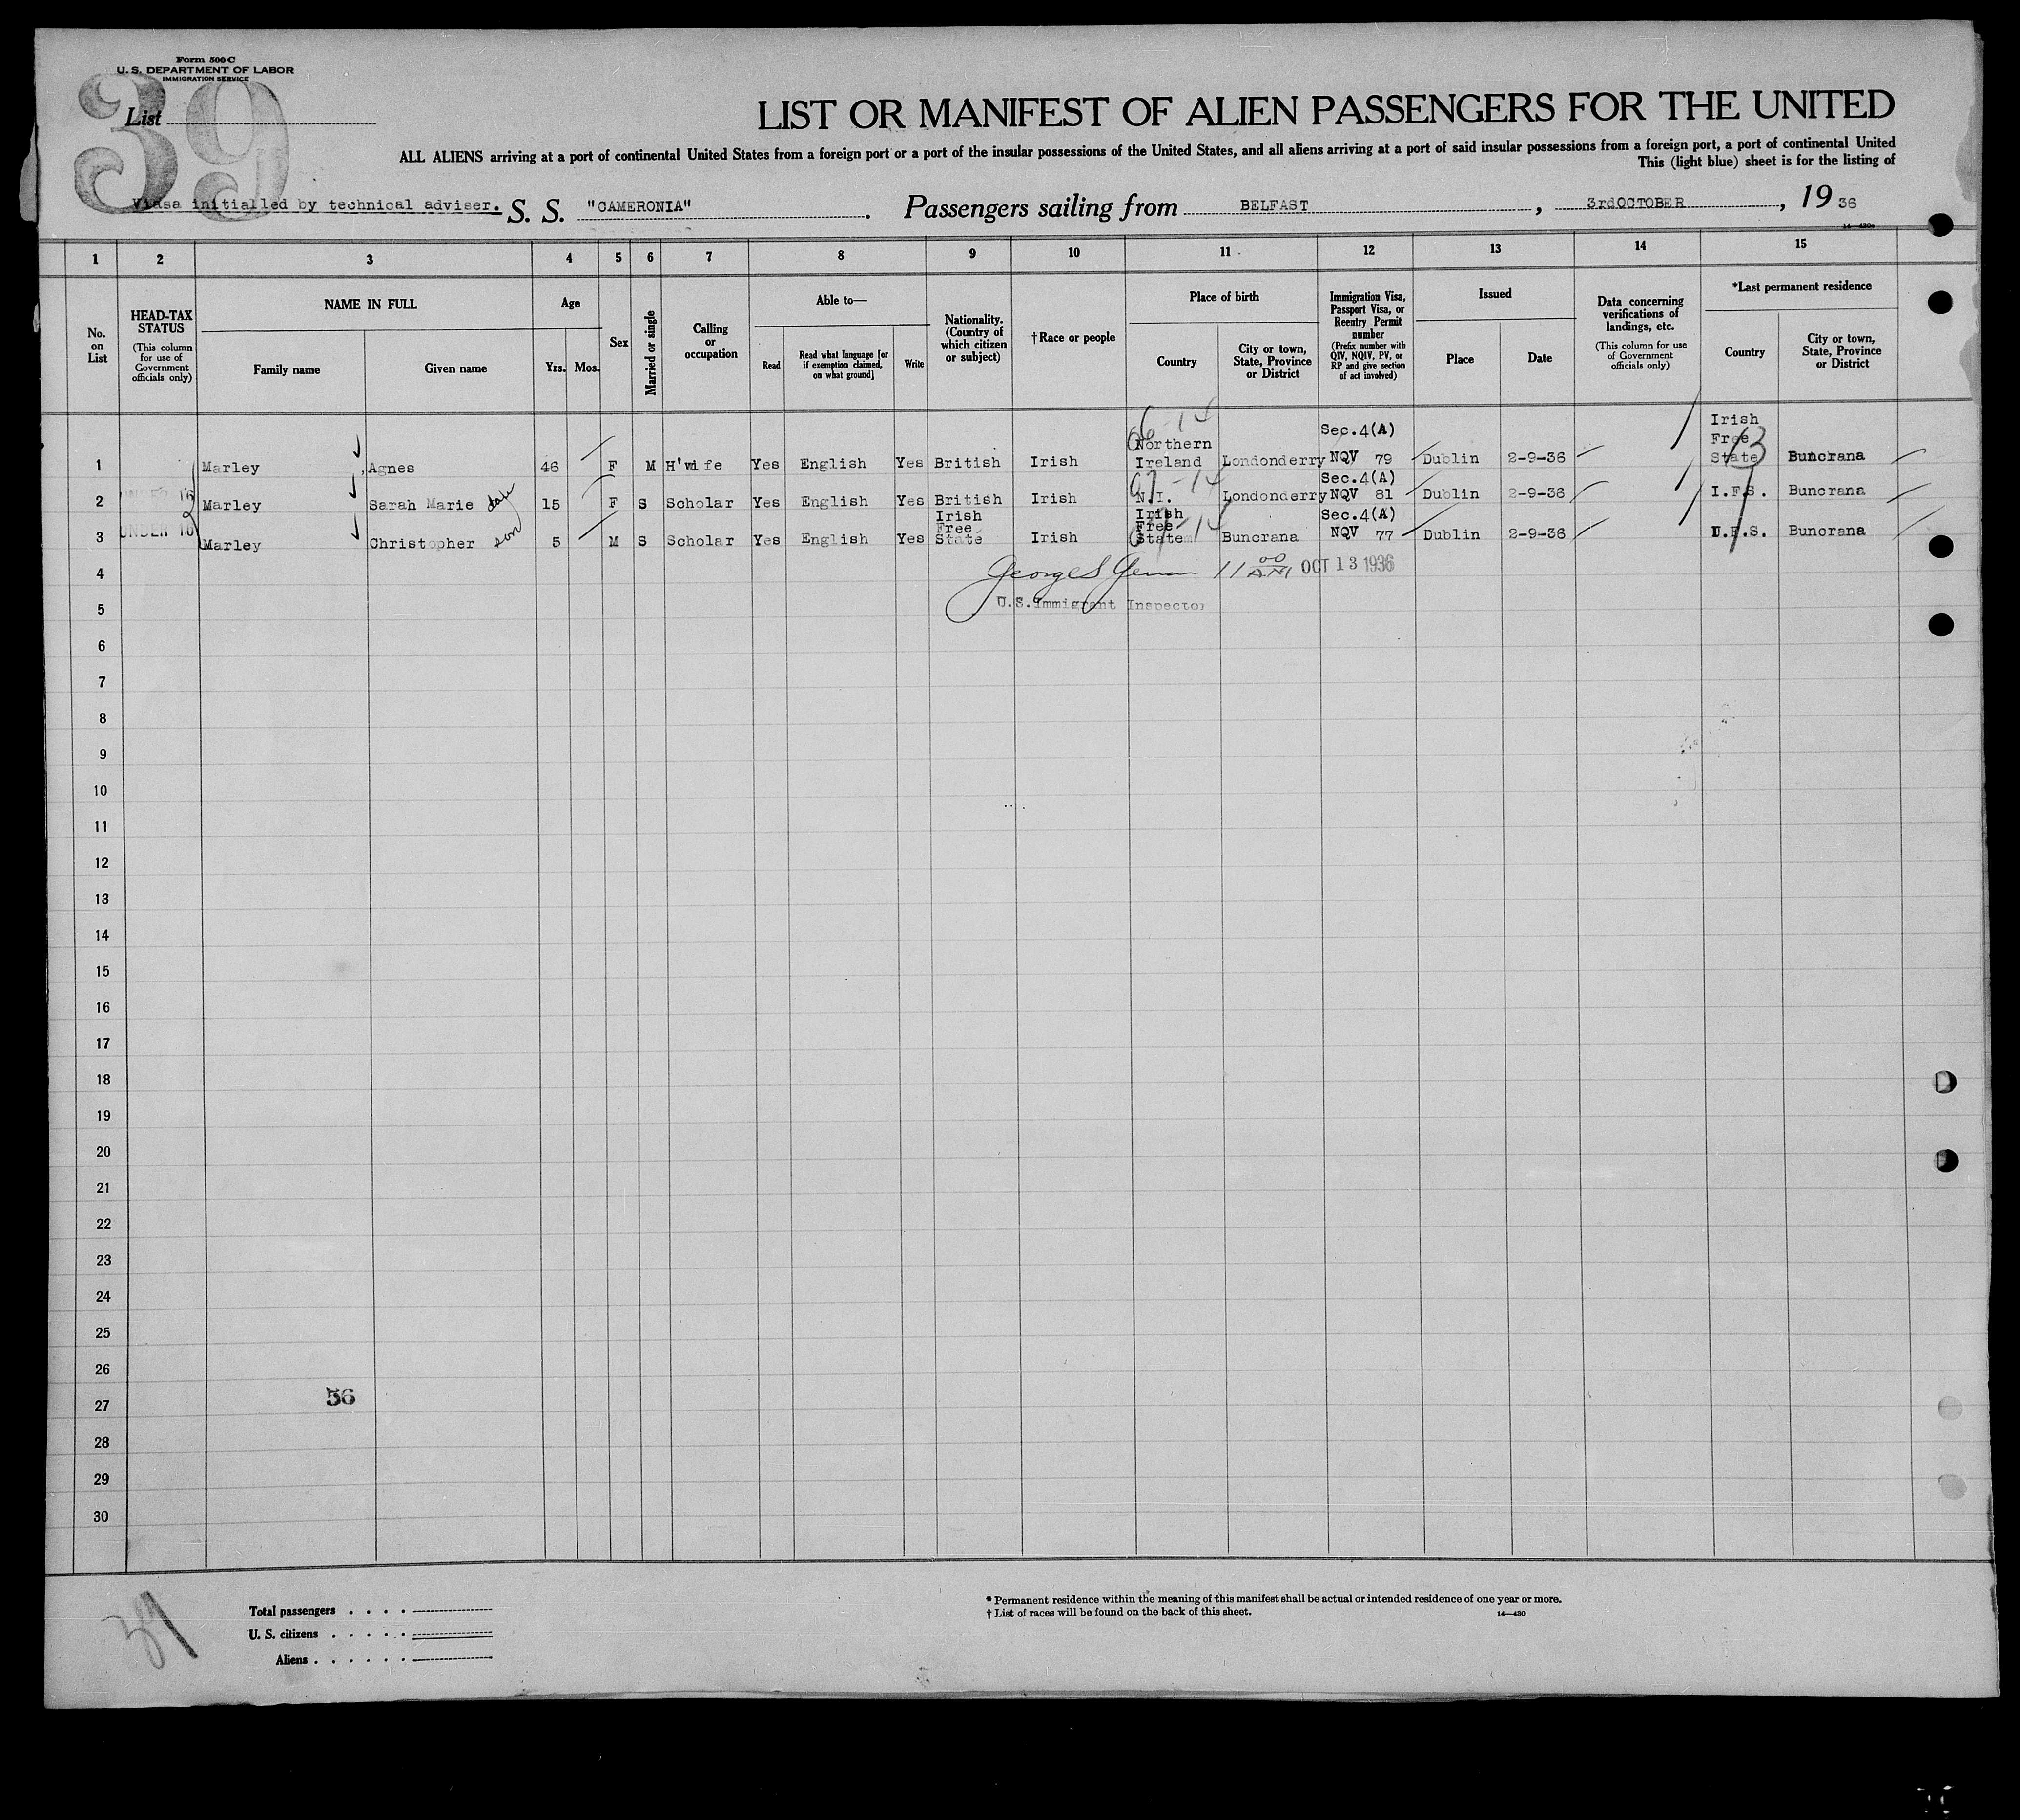 Form 500 C
U. S. DEPARTMENT OF LABOR
IMMIGRATION SERVICE
39
List
LIST OR MANIFEST OF ALIEN PASSENGERS FOR THE UNITED
ALL ALIENS arriving at a port of continental United States from a foreign port or a port of the insular possessions of the United States, and all aliens arriving at a port of said insular possessions from a foreign port, a port of continental United
This (light blue) sheet is for the listing of
Viasa initialled by technical adviser. S. S. "CAMERONIA". Passengers sailing from BELFAST, 3rdOCTOBER, 19 36
14—430a
1 2 3 4 5 6 7 8 9 10 11 12 13 14 15
No. on List
HEAD-TAX STATUS (This column for use of Government officials only)
NAME IN FULL
Family name
Given name
Age
Yrs. Mos.
Sex
Married or single
Calling or occupation
Able to—
Read
Read what language [or if exemption claimed, on what ground]
Write
Nationality. (Country of which citizen or subject)
† Race or people
Place of birth
Country
City or town, State, Province or District
Immigration Visa, Passport Visa, or Reentry Permit number (Prefix number with QIV, NQIV, PV, or RP and give section of act involved)
Issued
Place
Date
Data concerning verifications of landings, etc. (This column for use of Government officials only)
*Last permanent residence
Country
City or town, State, Province or District
1 Marley Agnes 46 F M H'wife Yes English Yes British Irish Northern Ireland Londonderry Sec.4(A) NQV 79 Dublin 2-9-36 Irish Free State Buncrana
UNDER 16
2 Marley Sarah Marie 15 F S Scholar Yes English Yes British Irish N.I. Londonderry Sec.4(A) NQV 81 Dublin 2-9-36 I.F.S. Buncrana
UNDER 16
3 Marley Christopher son 5 M S Scholar Yes English Yes Irish Free State Irish Irish Free State Buncrana Sec.4(A) NQV 77 Dublin 2-9-36 I.F.S. Buncrana
4 11 00 A.M. OCT 13 1936
5 U.S.Immigrant Inspector
6
7
8
9
10
11
12
13
14
15
16
17
18
19
20
21
22
23
24
25
26
27 56
28
29
30
39
Total passengers . . . .
U. S. citizens . . . . .
Aliens . . . . . .
* Permanent residence within the meaning of this manifest shall be actual or intended residence of one year or more.
† List of races will be found on the back of this sheet. 14—430